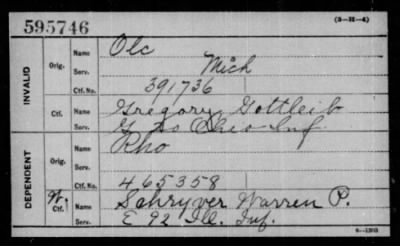 595746
(3-21-4)
INVALID
Orig.
Name Olc
Serv. Mich
Ctf. No. 391736
Ctf.
Name Gregory, Gottleib
Serv. Ohio Inf
DEPENDENT
Orig.
Name Rho
Serv.
Ctf. No. 465358
W. Ctf.
Name Schryver Warren P.
Serv. E 92 Ill. Inf.